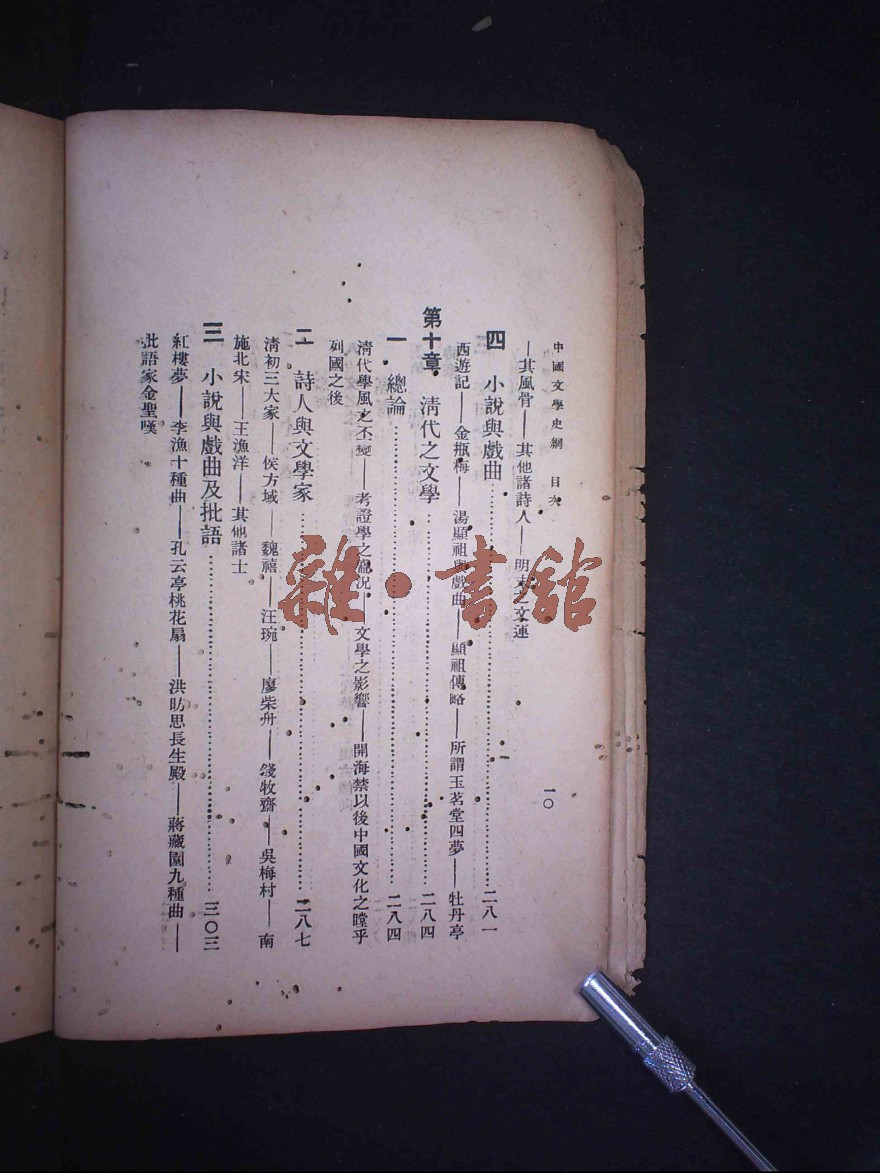 中國文學史綱 目次 一〇
—其風骨——其他諸詩人——明末之文運
四 小說與戲曲……二八一
西遊記——金瓶梅——湯顯祖與戲曲——顯祖傳略——所謂玉茗堂四夢——牡丹亭
第十章 清代之文學……二八四
一 總論……二八四
清代學風之丕變——考證學之盛況——文學之影響——開海禁以後中國文化之瞠乎
列國之後
二 詩人與文學家……二八七
清初三大家——侯方域——魏禧——汪琬——廖柴舟——錢牧齋——吳梅村——南
施北宋——王漁洋——其他諸士
三 小說與戲曲及批語……三〇三
紅樓夢——李漁十種曲——孔云亭桃花扇——洪昉思長生殿——蔣藏園九種曲——
批語家金聖嘆
雜·書館